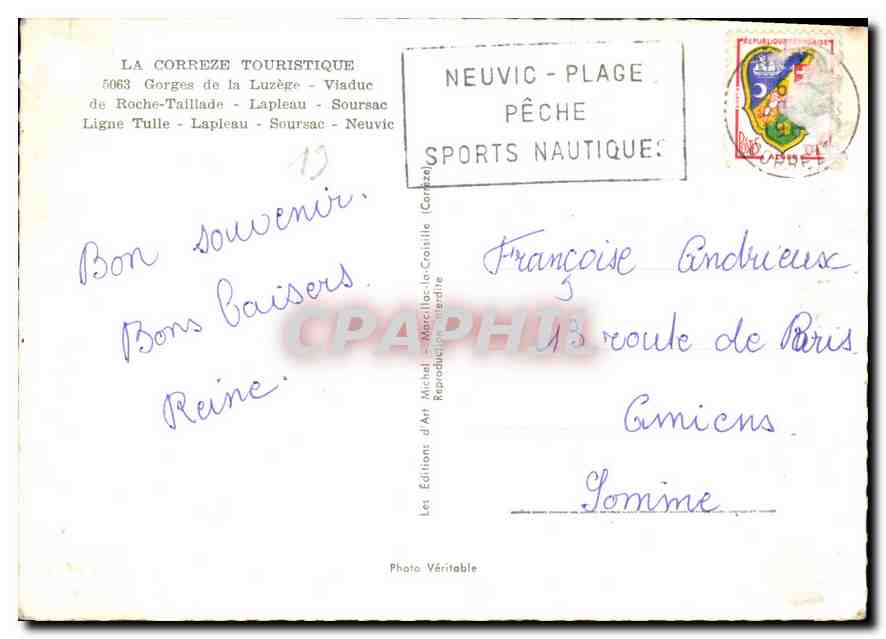 LA CORREZE TOURISTIQUE
5063 Gorges de la Luzège - Viaduc
de Roche-Taillade - Lapleau - Soursac
Ligne Tulle - Lapleau - Soursac - Neuvic
19
NEUVIC - PLAGE
PÊCHE
SPORTS NAUTIQUES
REPUBLIQUE FRANÇAISE
POSTES
Bon souvenir.
Bons baisers.
Reine.
Les Éditions d'Art Michel - Marcillac-la-Croisille (Corrèze)
Reproduction interdite
Françoise Andrieux
13 route de Paris.
Amiens.
Somme
CPAPHIL
Photo Véritable